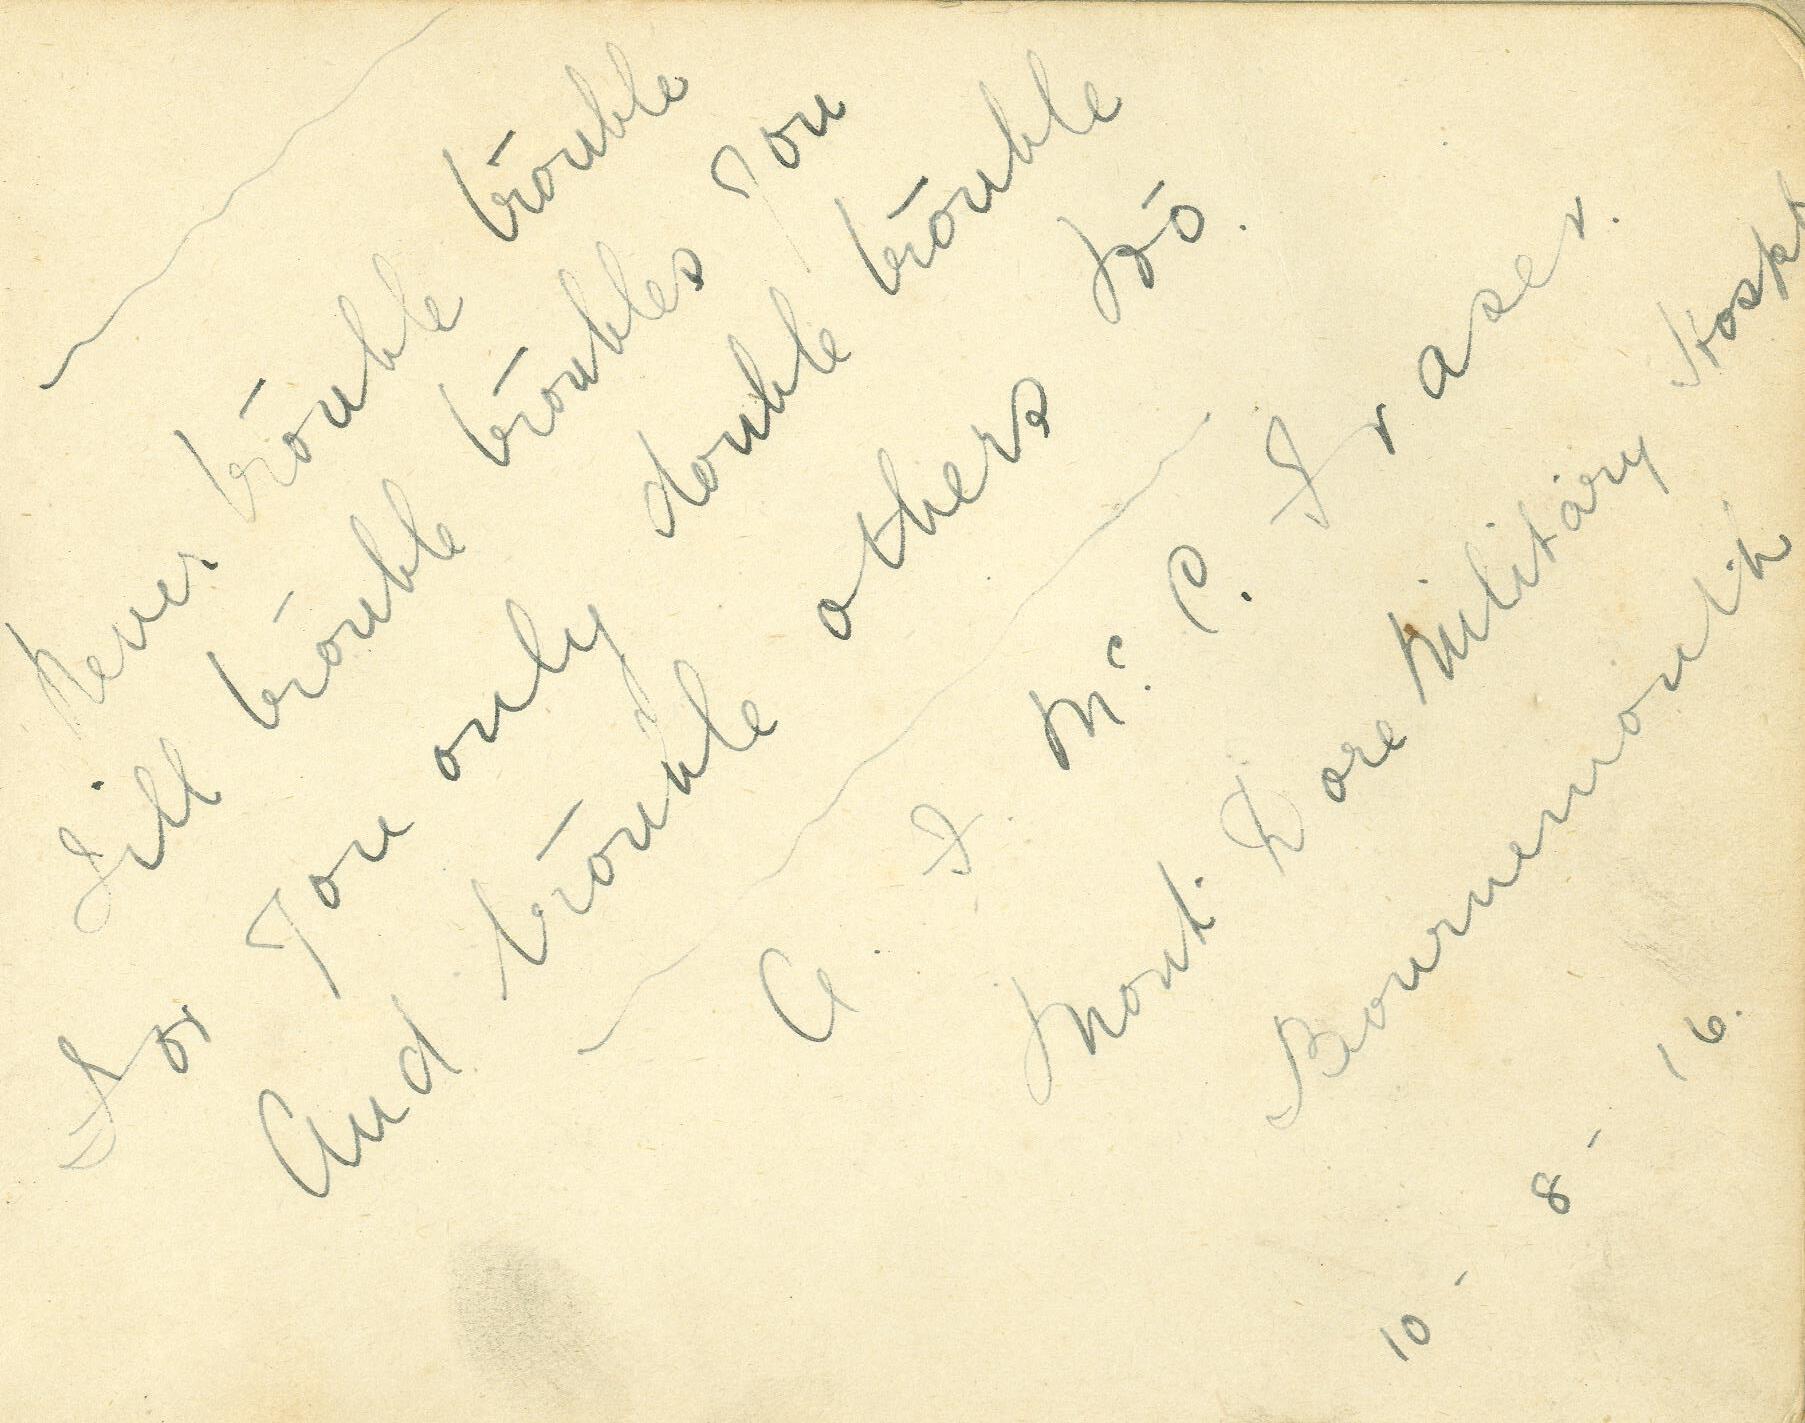 Never trouble trouble
Till trouble troubles You
For You only double trouble
And trouble others too.
A. F. Mc. P. Fraser.
Mont Dore Military Hospt
Bournemouth
10-8-16.